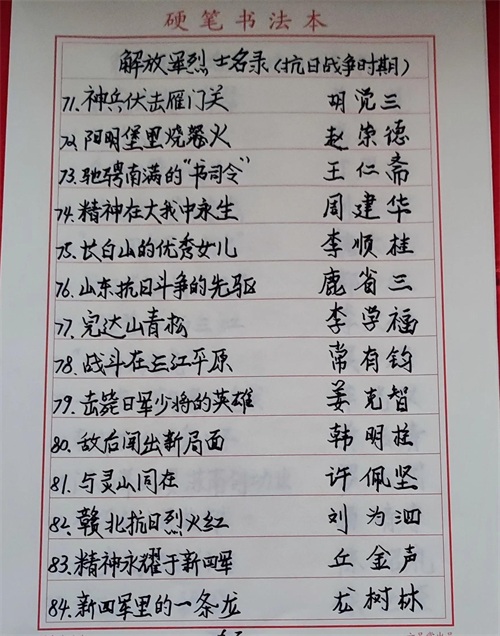 硬笔书法本
解放军烈士名录(抗日战争时期)
71.神兵伏击雁门关 胡觉三
72.阳明堡里烧篝火 赵崇德
73.驰骋南满的"书司令" 王仁斋
74.精神在大我中永生 周建华
75.长白山的优秀女儿 李顺桂
76.山东抗日斗争的先驱 鹿省三
77.完达山青松 李学福
78.战斗在三江平原 常有钧
79.击毙日军少将的英雄 姜克智
80.敌后闹出新局面 韩明柱
81.与灵山同在 许佩坚
82.赣北抗日烈火红 刘为泗
83.精神永耀于新四军 丘金声
84.新四军里的一条龙 尤树林